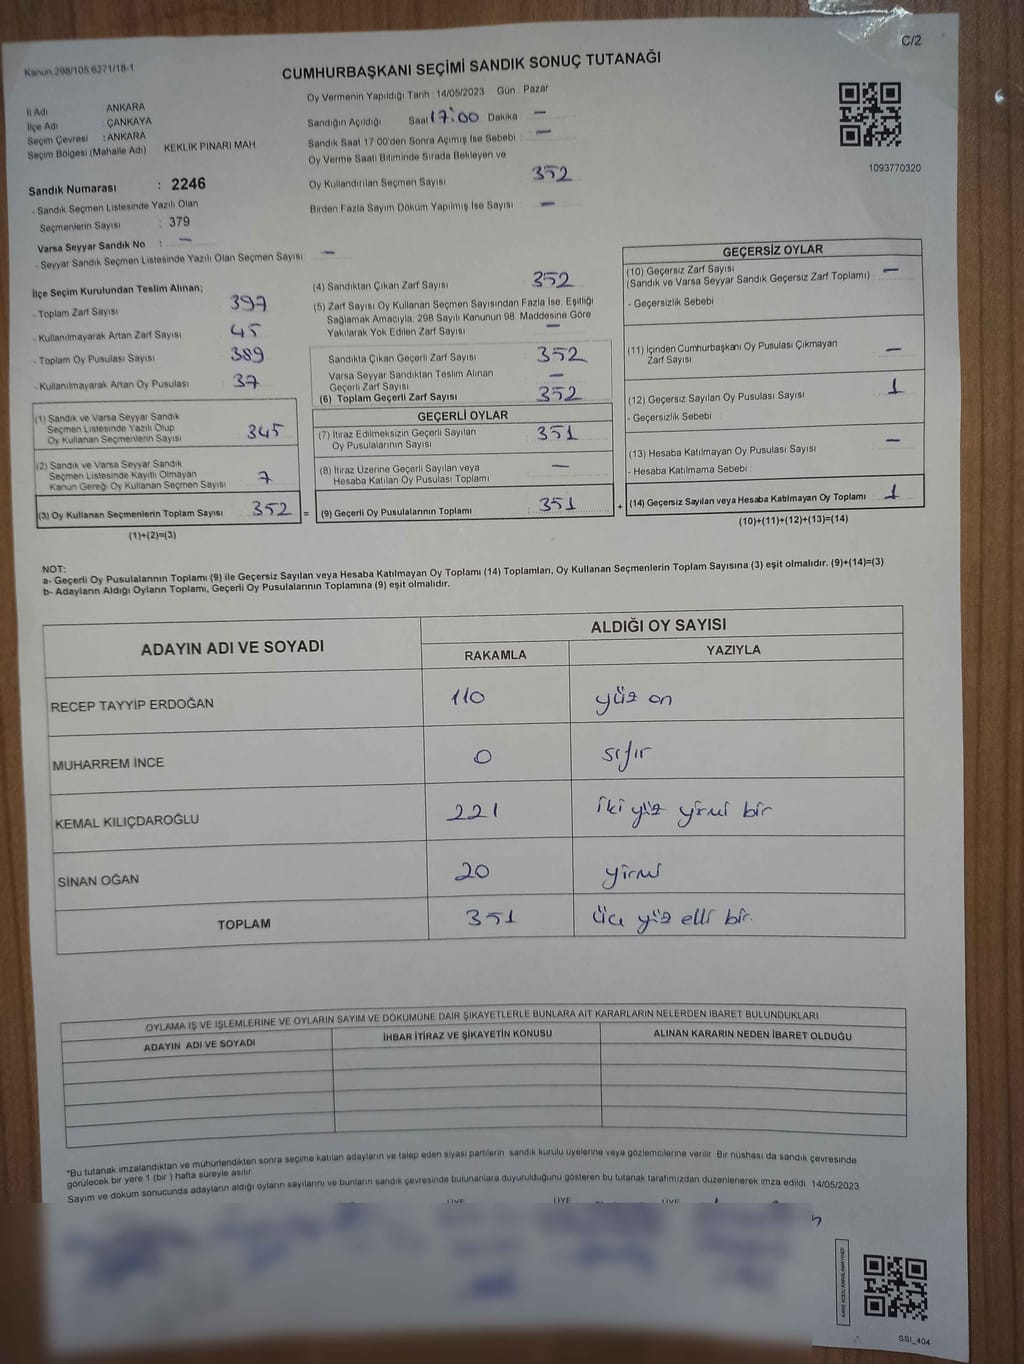 C/2
Kanun 298/105 6271/18-1
CUMHURBAŞKANI SEÇİMİ SANDIK SONUÇ TUTANAĞI
Oy Vermenin Yapıldığı Tarih : 14/05/2023 Gün : Pazar
İl Adı : ANKARA
İlçe Adı : ÇANKAYA
Seçim Çevresi : ANKARA
Seçim Bölgesi (Mahalle Adı) : KEKLİK PINARI MAH
Sandık Numarası : 2246
- Sandık Seçmen Listesinde Yazılı Olan
Seçmenlerin Sayısı : 379
Varsa Seyyar Sandık No : –
- Seyyar Sandık Seçmen Listesinde Yazılı Olan Seçmen Sayısı : –
Sandığın Açıldığı Saat 17:00 Dakika –
Sandık Saat 17:00'den Sonra Açımış İse Sebebi : –
Oy Verme Saati Bitiminde Sırada Bekleyen ve
Oy Kullandırılan Seçmen Sayısı : 352
Birden Fazla Sayım Döküm Yapılmış İse Sayısı : –
1093770320
İlçe Seçim Kurulundan Teslim Alınan;
- Toplam Zarf Sayısı : 397
- Kullanılmayarak Artan Zarf Sayısı : 45
- Toplam Oy Pusulası Sayısı : 389
- Kullanılmayarak Artan Oy Pusulası : 37
(1) Sandık ve Varsa Seyyar Sandık
Seçmen Listesinde Yazılı Olup
Oy Kullanan Seçmenlerin Sayısı : 345
(2) Sandık ve Varsa Seyyar Sandık
Seçmen Listesinde Kayıtlı Olmayan
Kanun Gereği Oy Kullanan Seçmen Sayısı : 7
(3) Oy Kullanan Seçmenlerin Toplam Sayısı : 352 =
(1)+(2)=(3)
(4) Sandıktan Çıkan Zarf Sayısı : 352
(5) Zarf Sayısı Oy Kullanan Seçmen Sayısından Fazla İse, Eşitliği
Sağlamak Amacıyla, 298 Sayılı Kanunun 98. Maddesine Göre
Yakılarak Yok Edilen Zarf Sayısı : –
Sandıkta Çıkan Geçerli Zarf Sayısı : 352
Varsa Seyyar Sandıktan Teslim Alınan
Geçerli Zarf Sayısı : –
(6) Toplam Geçerli Zarf Sayısı : 352
GEÇERLİ OYLAR
(7) İtiraz Edilmeksizin Geçerli Sayılan
Oy Pusulalarının Sayısı : 351
(8) İtiraz Üzerine Geçerli Sayılan veya
Hesaba Katılan Oy Pusulası Toplamı : –
(9) Geçerli Oy Pusulalarının Toplamı : 351 +
GEÇERSİZ OYLAR
(10) Geçersiz Zarf Sayısı
(Sandık ve Varsa Seyyar Sandık Geçersiz Zarf Toplamı) : –
- Geçersizlik Sebebi :
(11) İçinden Cumhurbaşkanı Oy Pusulası Çıkmayan
Zarf Sayısı : –
(12) Geçersiz Sayılan Oy Pusulası Sayısı : 1
- Geçersizlik Sebebi :
(13) Hesaba Katılmayan Oy Pusulası Sayısı : –
- Hesaba Katılmama Sebebi :
(14) Geçersiz Sayılan veya Hesaba Katılmayan Oy Toplamı : 1
(10)+(11)+(12)+(13)=(14)
NOT:
a- Geçerli Oy Pusulalarının Toplamı (9) ile Geçersiz Sayılan veya Hesaba Katılmayan Oy Toplamı (14) Toplamları, Oy Kullanan Seçmenlerin Toplam Sayısına (3) eşit olmalıdır. (9)+(14)=(3)
b- Adayların Aldığı Oyların Toplamı, Geçerli Oy Pusulalarının Toplamına (9) eşit olmalıdır.
ADAYIN ADI VE SOYADI
ALDIĞI OY SAYISI
RAKAMLA YAZIYLA
RECEP TAYYİP ERDOĞAN 110 yüz on
MUHARREM İNCE 0 sıfır
KEMAL KILIÇDAROĞLU 221 iki yüz yirmi bir
SİNAN OĞAN 20 yirmi
TOPLAM 351 üç yüz elli bir.
OYLAMA İŞ VE İŞLEMLERİNE VE OYLARIN SAYIM VE DÖKÜMÜNE DAİR ŞİKAYETLERLE BUNLARA AİT KARARLARIN NELERDEN İBARET BULUNDUKLARI
ADAYIN ADI VE SOYADI İHBAR İTİRAZ VE ŞİKAYETİN KONUSU ALINAN KARARIN NEDEN İBARET OLDUĞU
*Bu tutanak imzalandıktan ve mühürlendikten sonra seçime katılan adayların ve talep eden siyasi partilerin sandık kurulu üyelerine veya gözlemcilerine verilir. Bir nüshası da sandık çevresinde
görülecek bir yere 1 (bir ) hafta süreyle asılır.
Sayım ve döküm sonucunda adayların aldığı oyların sayılarını ve bunların sandık çevresinde bulunanlara duyurulduğunu gösteren bu tutanak tarafımızdan düzenlenerek imza edildi. 14/05/2023
ÜYE ÜYE ÜYE
SSİ_404